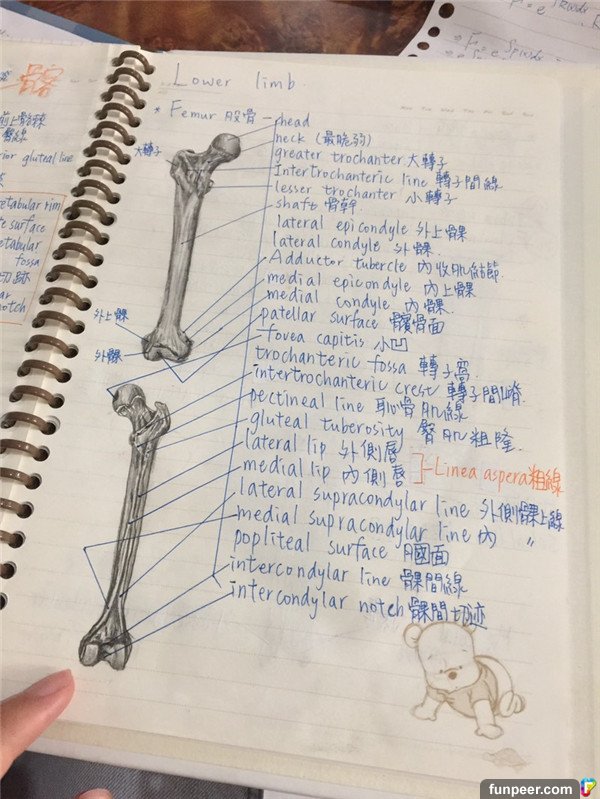 Lower limb.
* Femur 股骨 - head
neck (最脆弱)
大轉子
greater trochanter 大轉子
Intertrochanteric line 轉子間線
lesser trochanter 小轉子
shaft 骨幹
lateral epicondyle 外上髁
lateral condyle 外髁.
Adductor tubercle 內收肌結節
medial epicondyle 內上髁
medial condyle 內髁.
外上髁
patellar surface 髕骨面
外髁
fovea capitis 小凹
trochanteric fossa 轉子窩
intertrochanteric crest 轉子間嵴.
pectineal line 恥骨肌線
gluteal tuberosity 臀肌粗隆.
lateral lip 外側唇
medial lip 內側唇 ]-Linea aspera 粗線
lateral supracondylar line 外側髁上線
medial supracondylar line 內 〃
popliteal surface 膕面
intercondylar line 髁間線
intercondylar notch 髁間切迹
rior gluteal line
etabular rim
te surface
etabular
fossa
切跡
ar
notch
funpeer.com